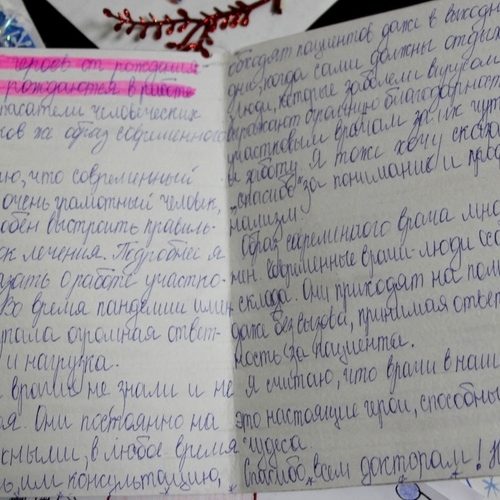 героев от рождения
рождаются в работе
спасатели человеческих
же образ современного

что современный
очень грамотный человек,
выстроить правиль-
лечения. Подробнее я
о работе участко-
Во время пандемии имен-
огромная ответ-
и нагрузка.
врачи не знали и не
Они постоянно на
в любое время
или консультацию,
обходят пациентов даже в выходн
дни, когда сами должны отдых
люди, которые заболели вирусом
выражают огромную благодарност
участковым врачам за их чут
и заботу. Я тоже хочу сказа
„спасибо" за понимание и проф
нализм
Образ современного врача мно
мен. Современные врачи-люди осо
склада. Они приходят на пом
даже без вызова, принимая ответ
ность за пациента.
Я считаю, что врачи в наш
это настоящие герои, способны
чудеса.
Спасибо всем докторам!